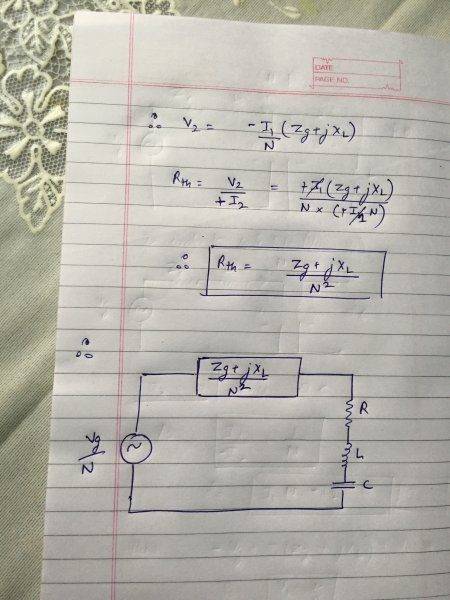 DATE
PAGE NO.
∴ V₂ = -I₁/N (Zg + jXL)
Rth = V₂/+I₂ = +I₁(Zg + jXL)/N × (+I₁N)
∴ Rth = Zg + jXL/N²
∴
Zg + jXL/N²
R
Vg/N
~
L
C